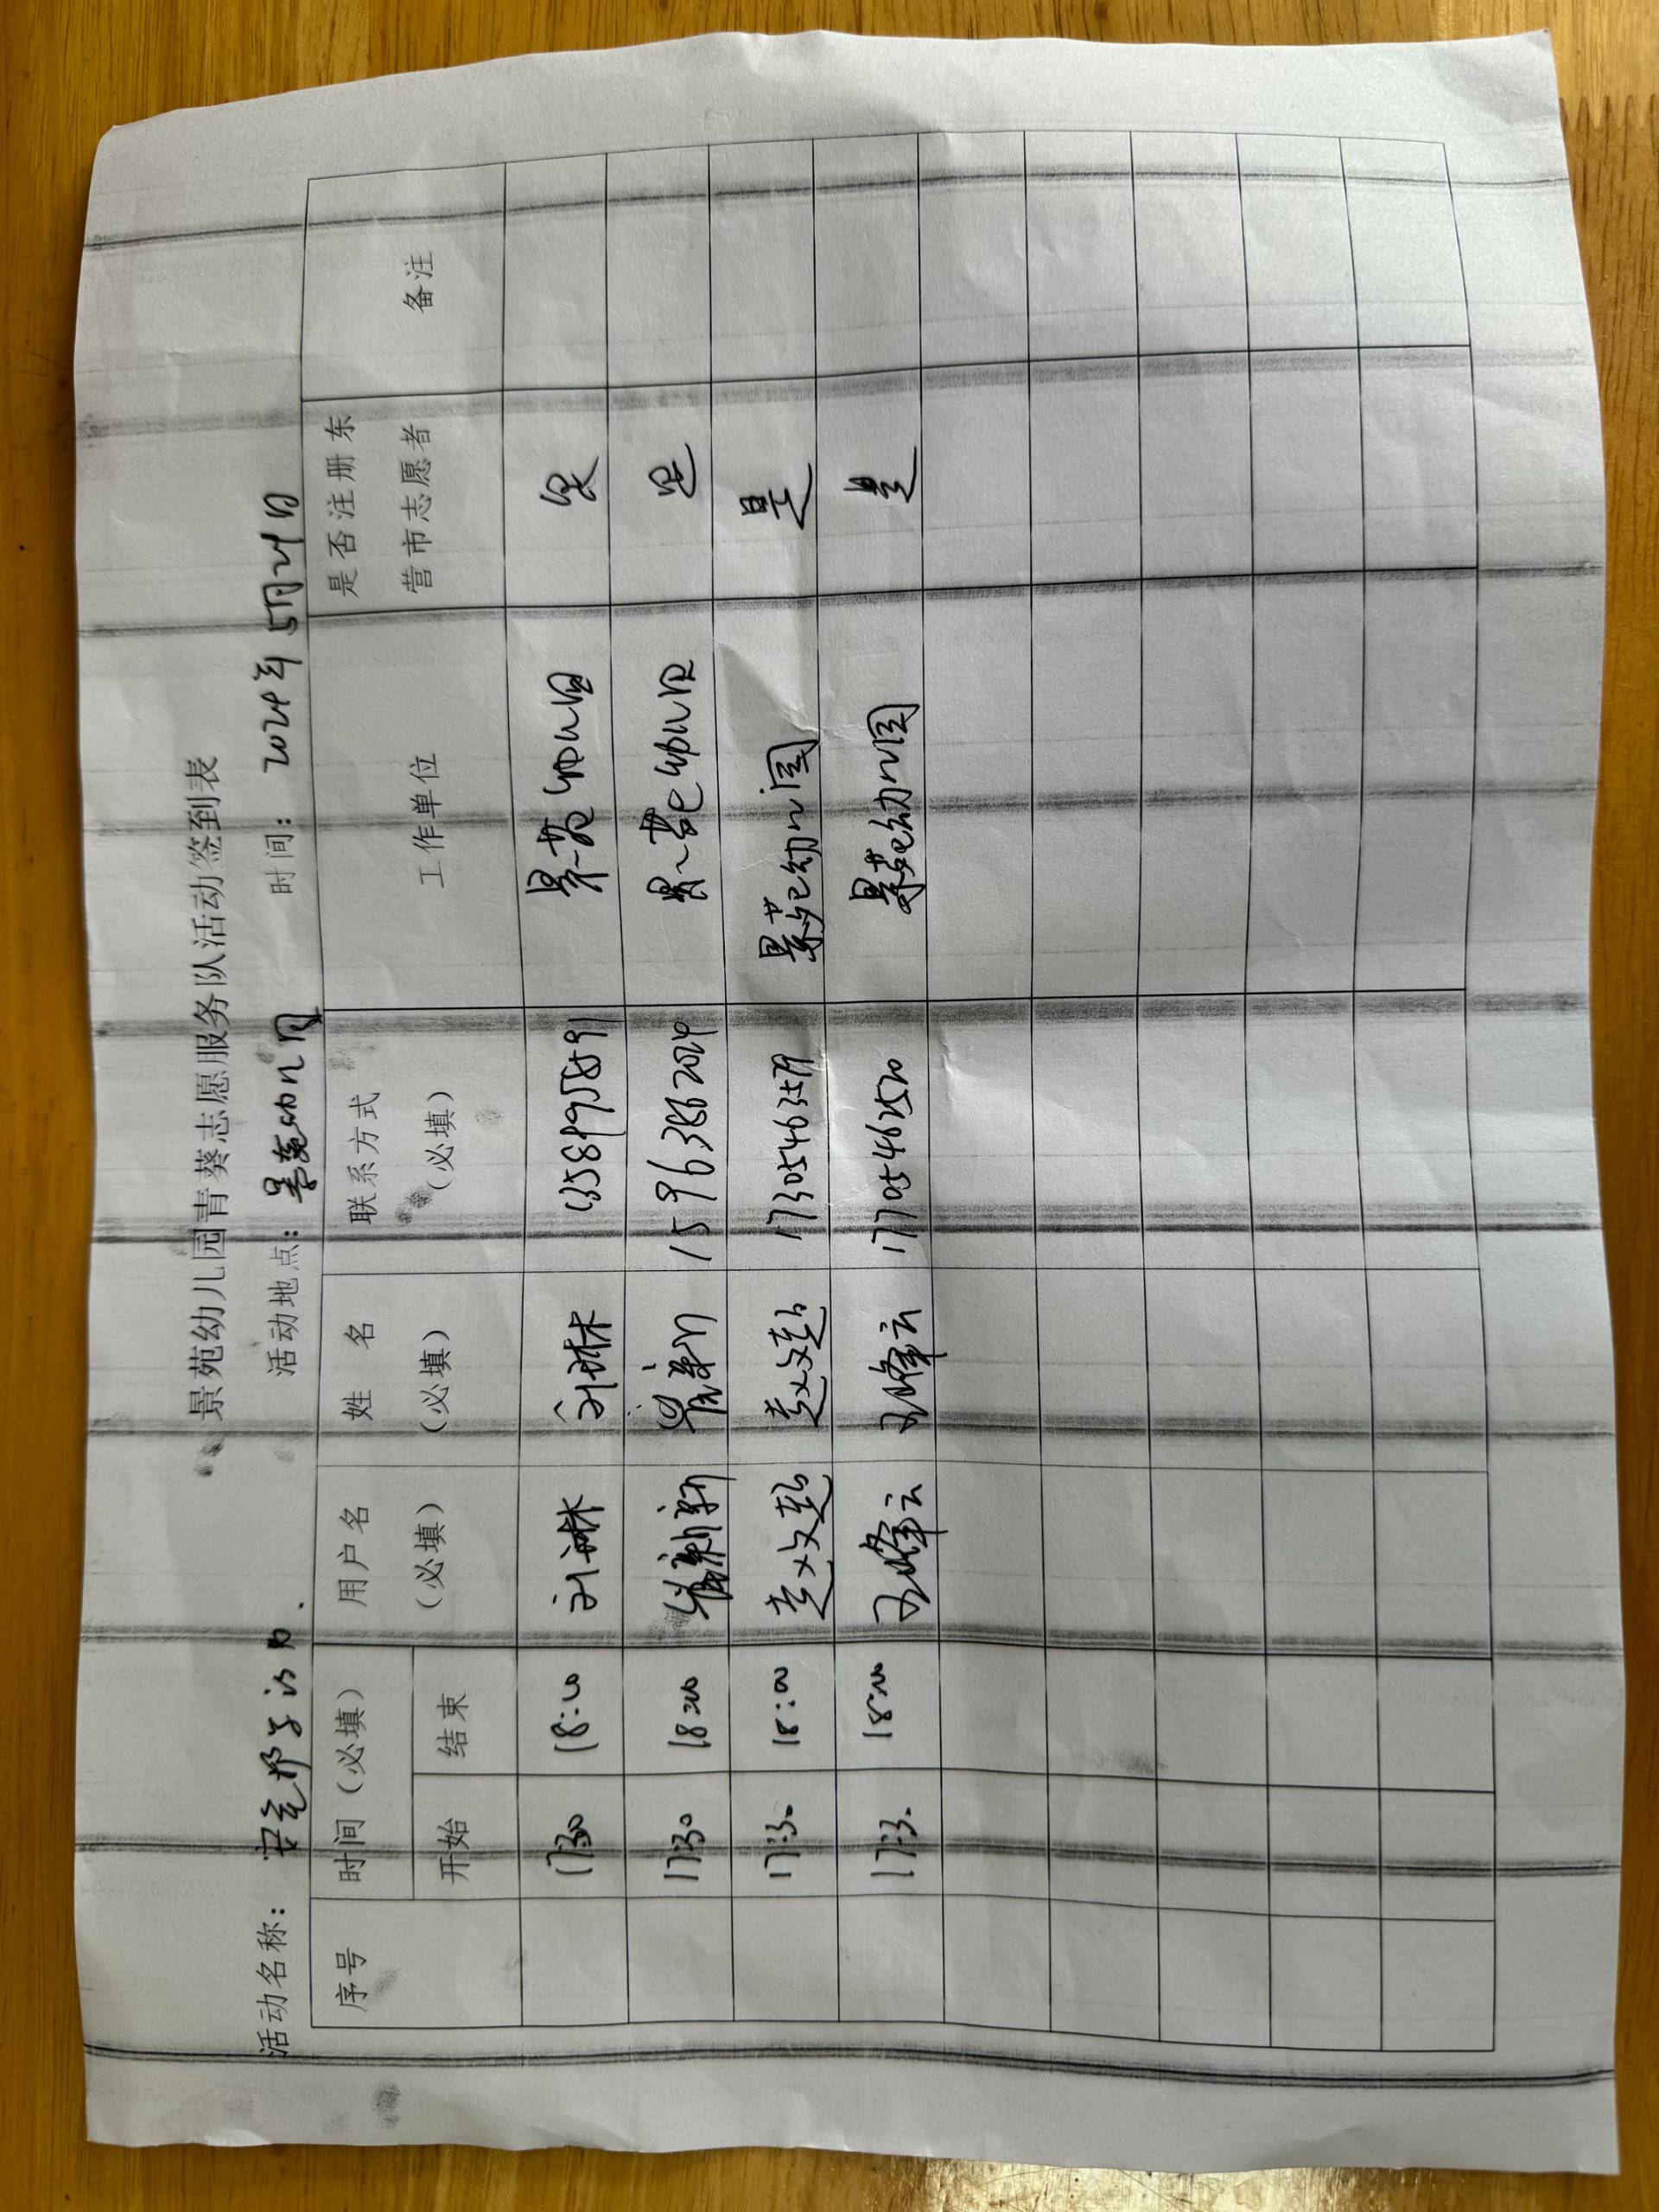 景苑幼儿园青葵志愿服务队活动签到表
活动名称： 活动地点：景苑幼儿园 时间：2024年5月24日
序号 时间（必填） 用户名（必填） 姓名（必填） 联系方式（必填） 工作单位 是否注册东营市志愿者 备注
开始 结束
17:30 18:00 刘琳 刘琳 景苑幼儿园 是
17:30 18:00 15963862024 景苑幼儿园 是
17:30 18:00 景苑幼儿园 是
17:30 18:00 17705462520 景苑幼儿园 是